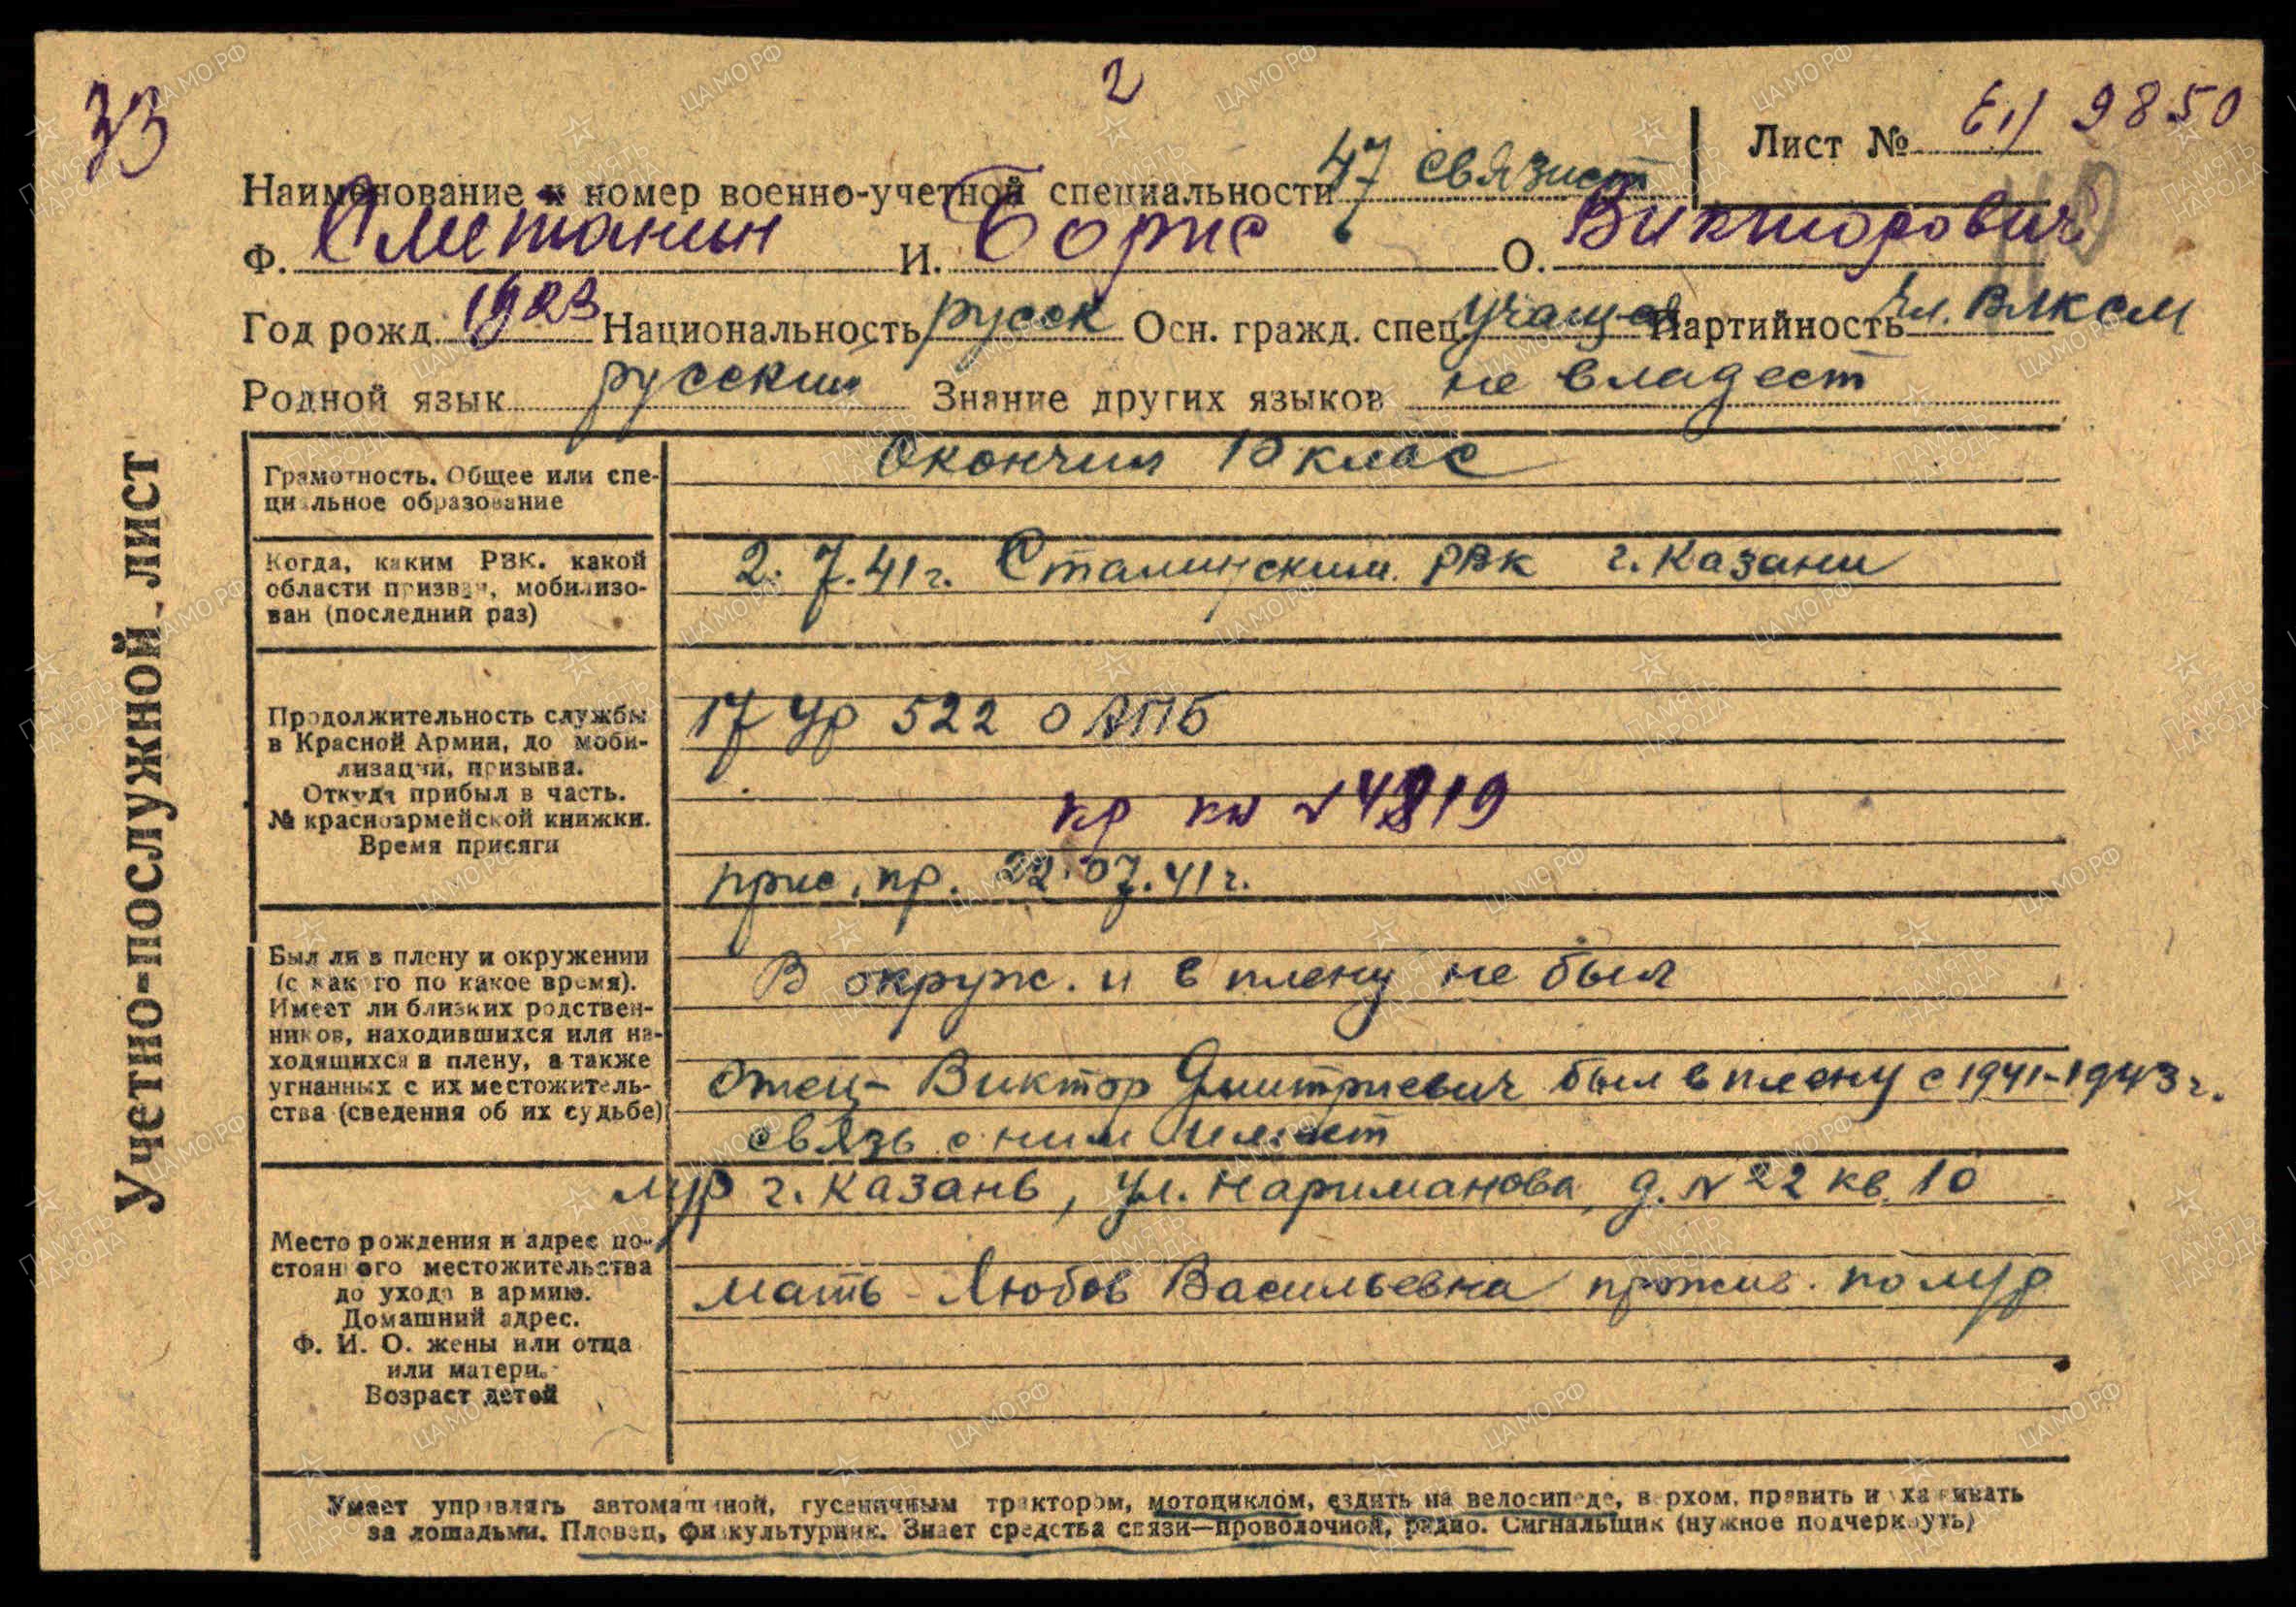 33
2
Лист № 9850
Наименование и номер военно-учетной специальности 47 связист
Ф. Сметанин И. Борис О. Викторович
Год рожд. 1923 Национальность русск Осн. гражд. спец. учащ-ся Партийность чл. ВЛКСМ
Родной язык русский Знание других языков не владеет
Учетно-послужной лист
Грамотность. Общее или специальное образование
Окончил 10 клас
Когда, каким РВК. какой
области призван, мобилизо-
ван (последний раз)
2.7.41г. Сталинским РВК г. Казани
Продолжительность службы
в Красной Армии, до моби-
лизации, призыва.
Откуда прибыл в часть.
№ красноармейской книжки.
Время присяги
17 УР 522 ОАПБ
кр кн №4819
прис. пр. 22.07.41г.
Был ли в плену и окружении
(с какого по какое время).
Имеет ли близких родствен-
ников, находившихся или на-
ходящихся в плену, а также
угнанных с их местожитель-
ства (сведения об их судьбе)
В окруж. и в плену не был
Отец - Виктор Дмитриевич был в плену с 1941-1943г.
связь с ним имеет
Место рождения и адрес по-
стоянного местожительства
до ухода в армию.
Домашний адрес.
Ф. И. О. жены или отца
или матери.
Возраст детей
мур г. Казань, ул. Нариманова, д. №22 кв. 10
мать - Любов Васильевна прожив. по мур
Умеет управлять автомашиной, гусеничным трактором, мотоциклом, ездить на велосипеде, верхом, править и ухаживать
за лошадьми. Пловец, физкультурник. Знает средства связи—проволочной, радио. Сигнальщик (нужное подчеркнуть)
ПАМЯТЬ НАРОДА
ЦАМО.РФ